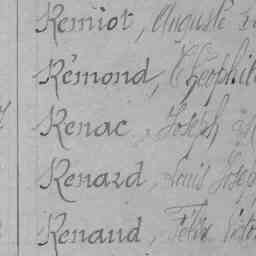 Remiot, Auguste
Rémond, Théophil
Renac, Joseph
Renard, Louis Josep
Renaud, Félix Victo